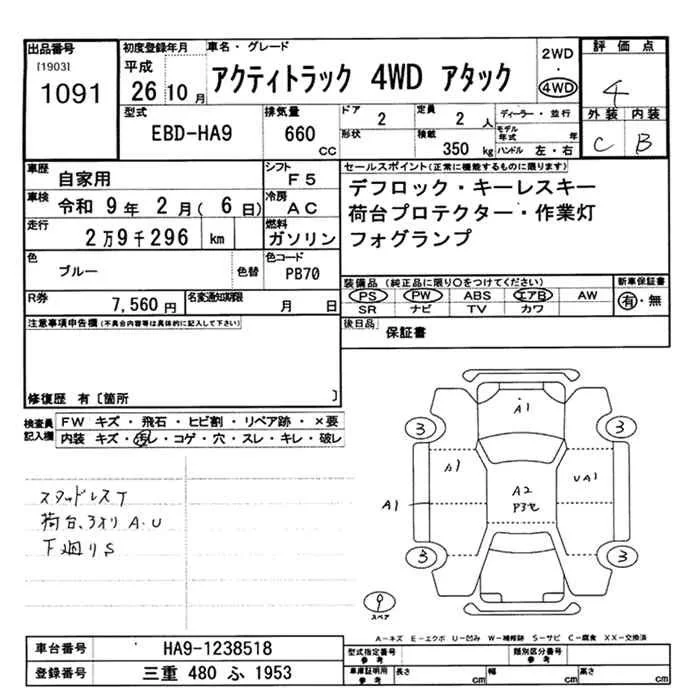 出品番号
[1903]
1091
初度登録年月
平成
26年10月
車名・グレード
アクティトラック 4WD アタック
2WD
・
4WD
評価点
4
外装 内装
C B
型式
EBD-HA9
排気量
660
CC
ドア
2
形状
定員
2 人
積載
350 kg
ディーラー・並行
モデル年式 年
ハンドル 左・右
車歴
自家用
シフト
F5
車検
令和 9年 2月( 6日)
冷房
AC
走行
2万9千296 km
燃料
ガソリン
色
ブルー
色替
色コード
PB70
R券
7,560円
名変通知期限
月 日
セールスポイント(正常に機能するものに限ります)
デフロック・キーレスキー
荷台プロテクター・作業灯
フォグランプ
装備品(純正品に限り○をつけてください)
PS PW ABS エアB AW
SR ナビ TV カワ
新車保証書
有・無
後日品
保証書
注意事項申告欄(不具合内容等は具体的に記入して下さい)
修復歴 有〔箇所 〕
検査員記入欄
FW キズ・飛石・ヒビ割・リペア跡・×要
内装 キズ・汚レ・コゲ・穴・スレ・キレ・破レ
スタッドレスT
荷台、3オリ A・U
下廻りS
A1
3
3
A1
UA1
A1
A2
P3セ
3
3
9
スペア
A-キズ E-エクボ U-凹み W-補修跡 S-サビ C-腐食 XX-交換済
車台番号
HA9-1238518
登録番号
三重 480 ふ 1953
型式指定番号
参考
類別区分番号
参考
車庫証明用
参考
長さ cm
幅 cm
高さ cm